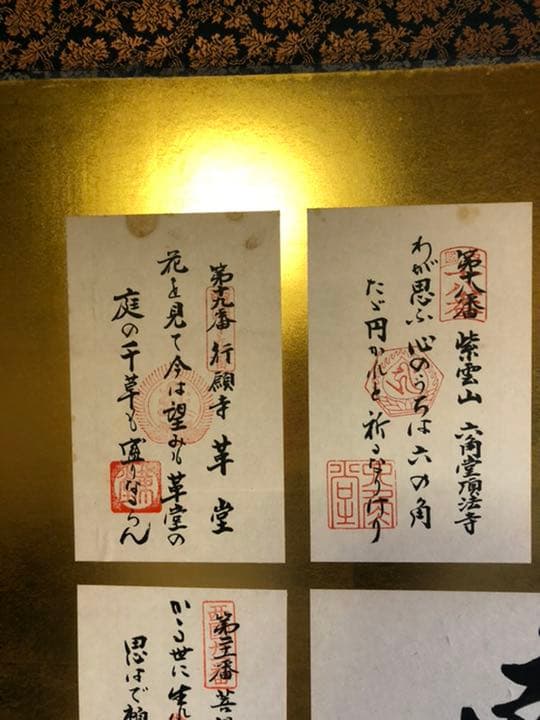 第十八番 紫雲山 六角堂頂法寺
わが思ふ心のうちは六の角
たゞ円かれと祈るなりけり
六角堂
第十九番 行願寺 革堂
花を見て今は望みも革堂の
庭の千草も盛りなるらん
第二十番 善
かゝる世に生れ
思はで頼